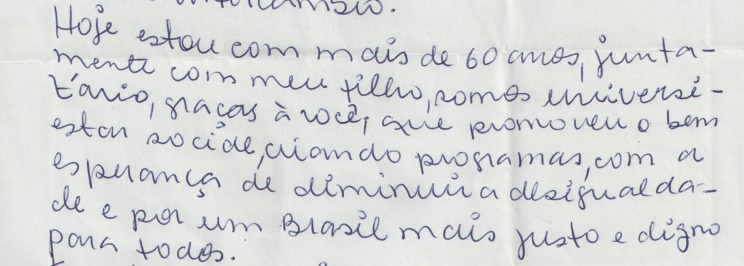 Hoje estou com mais de 60 anos, junta-
mente com meu filho, somos universi-
tário, graças à você, que promoveu o bem
estar sociale, criando programas, com a
esperança de diminuir a desigualda-
de e por um Brasil mais justo e digno
para todos.